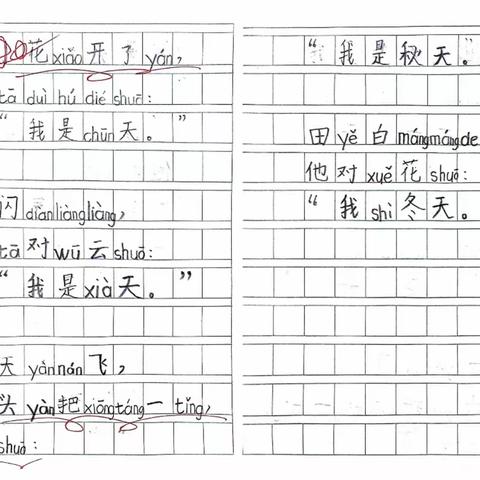 花xiǎo开了yán，
tā duì hú dié shuō：
“我是chūn天。”
闪diànliàngliàng，
tā对wū云shuō：
“我是xià天。”
天yànnán飞，
头yàn把xiōngtáng一tǐng，
shuō：
“我是秋天。”
田yě白mángmángde
他对xuě花shuō：
“我shì冬天。